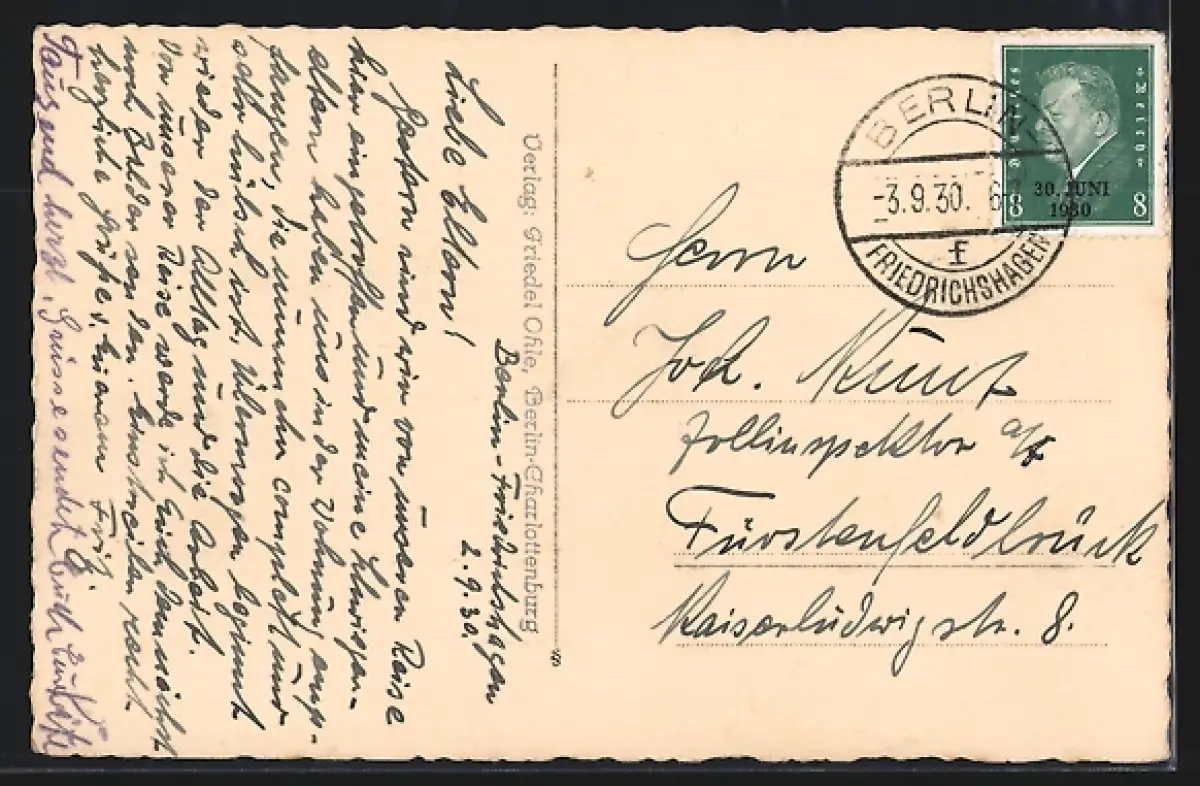 Berlin-Friedrichshagen
2.9.30.
Liebe Eltern!
Gestern sind wir von unserer Reise
hier eingetroffen und meine Schwieger-
eltern haben uns in der Wohnung emp-
fangen, die nunmehr complett und
sehr hübsch ist. Übermorgen beginnt
wieder der Alltag und die Arbeit.
Von unserer Reise werde ich Euch demnächst
noch Bilder senden. Einstweilen recht
herzliche Grüße v. Eurem Fritz.
Tausend herzl. Grüsse sendet Euch Eure Käthe
Verlag: Friedel Ohle, Berlin-Charlottenburg
BERLIN-
-3.9.30. 6
f
FRIEDRICHSHAGEN
Deutsches Reich
30. JUNI
1930
8 8
Herrn
Joh. Kunz
Zollinspektor a/
Fürstenfeldbrück
Kaiserludwigstr. 8.